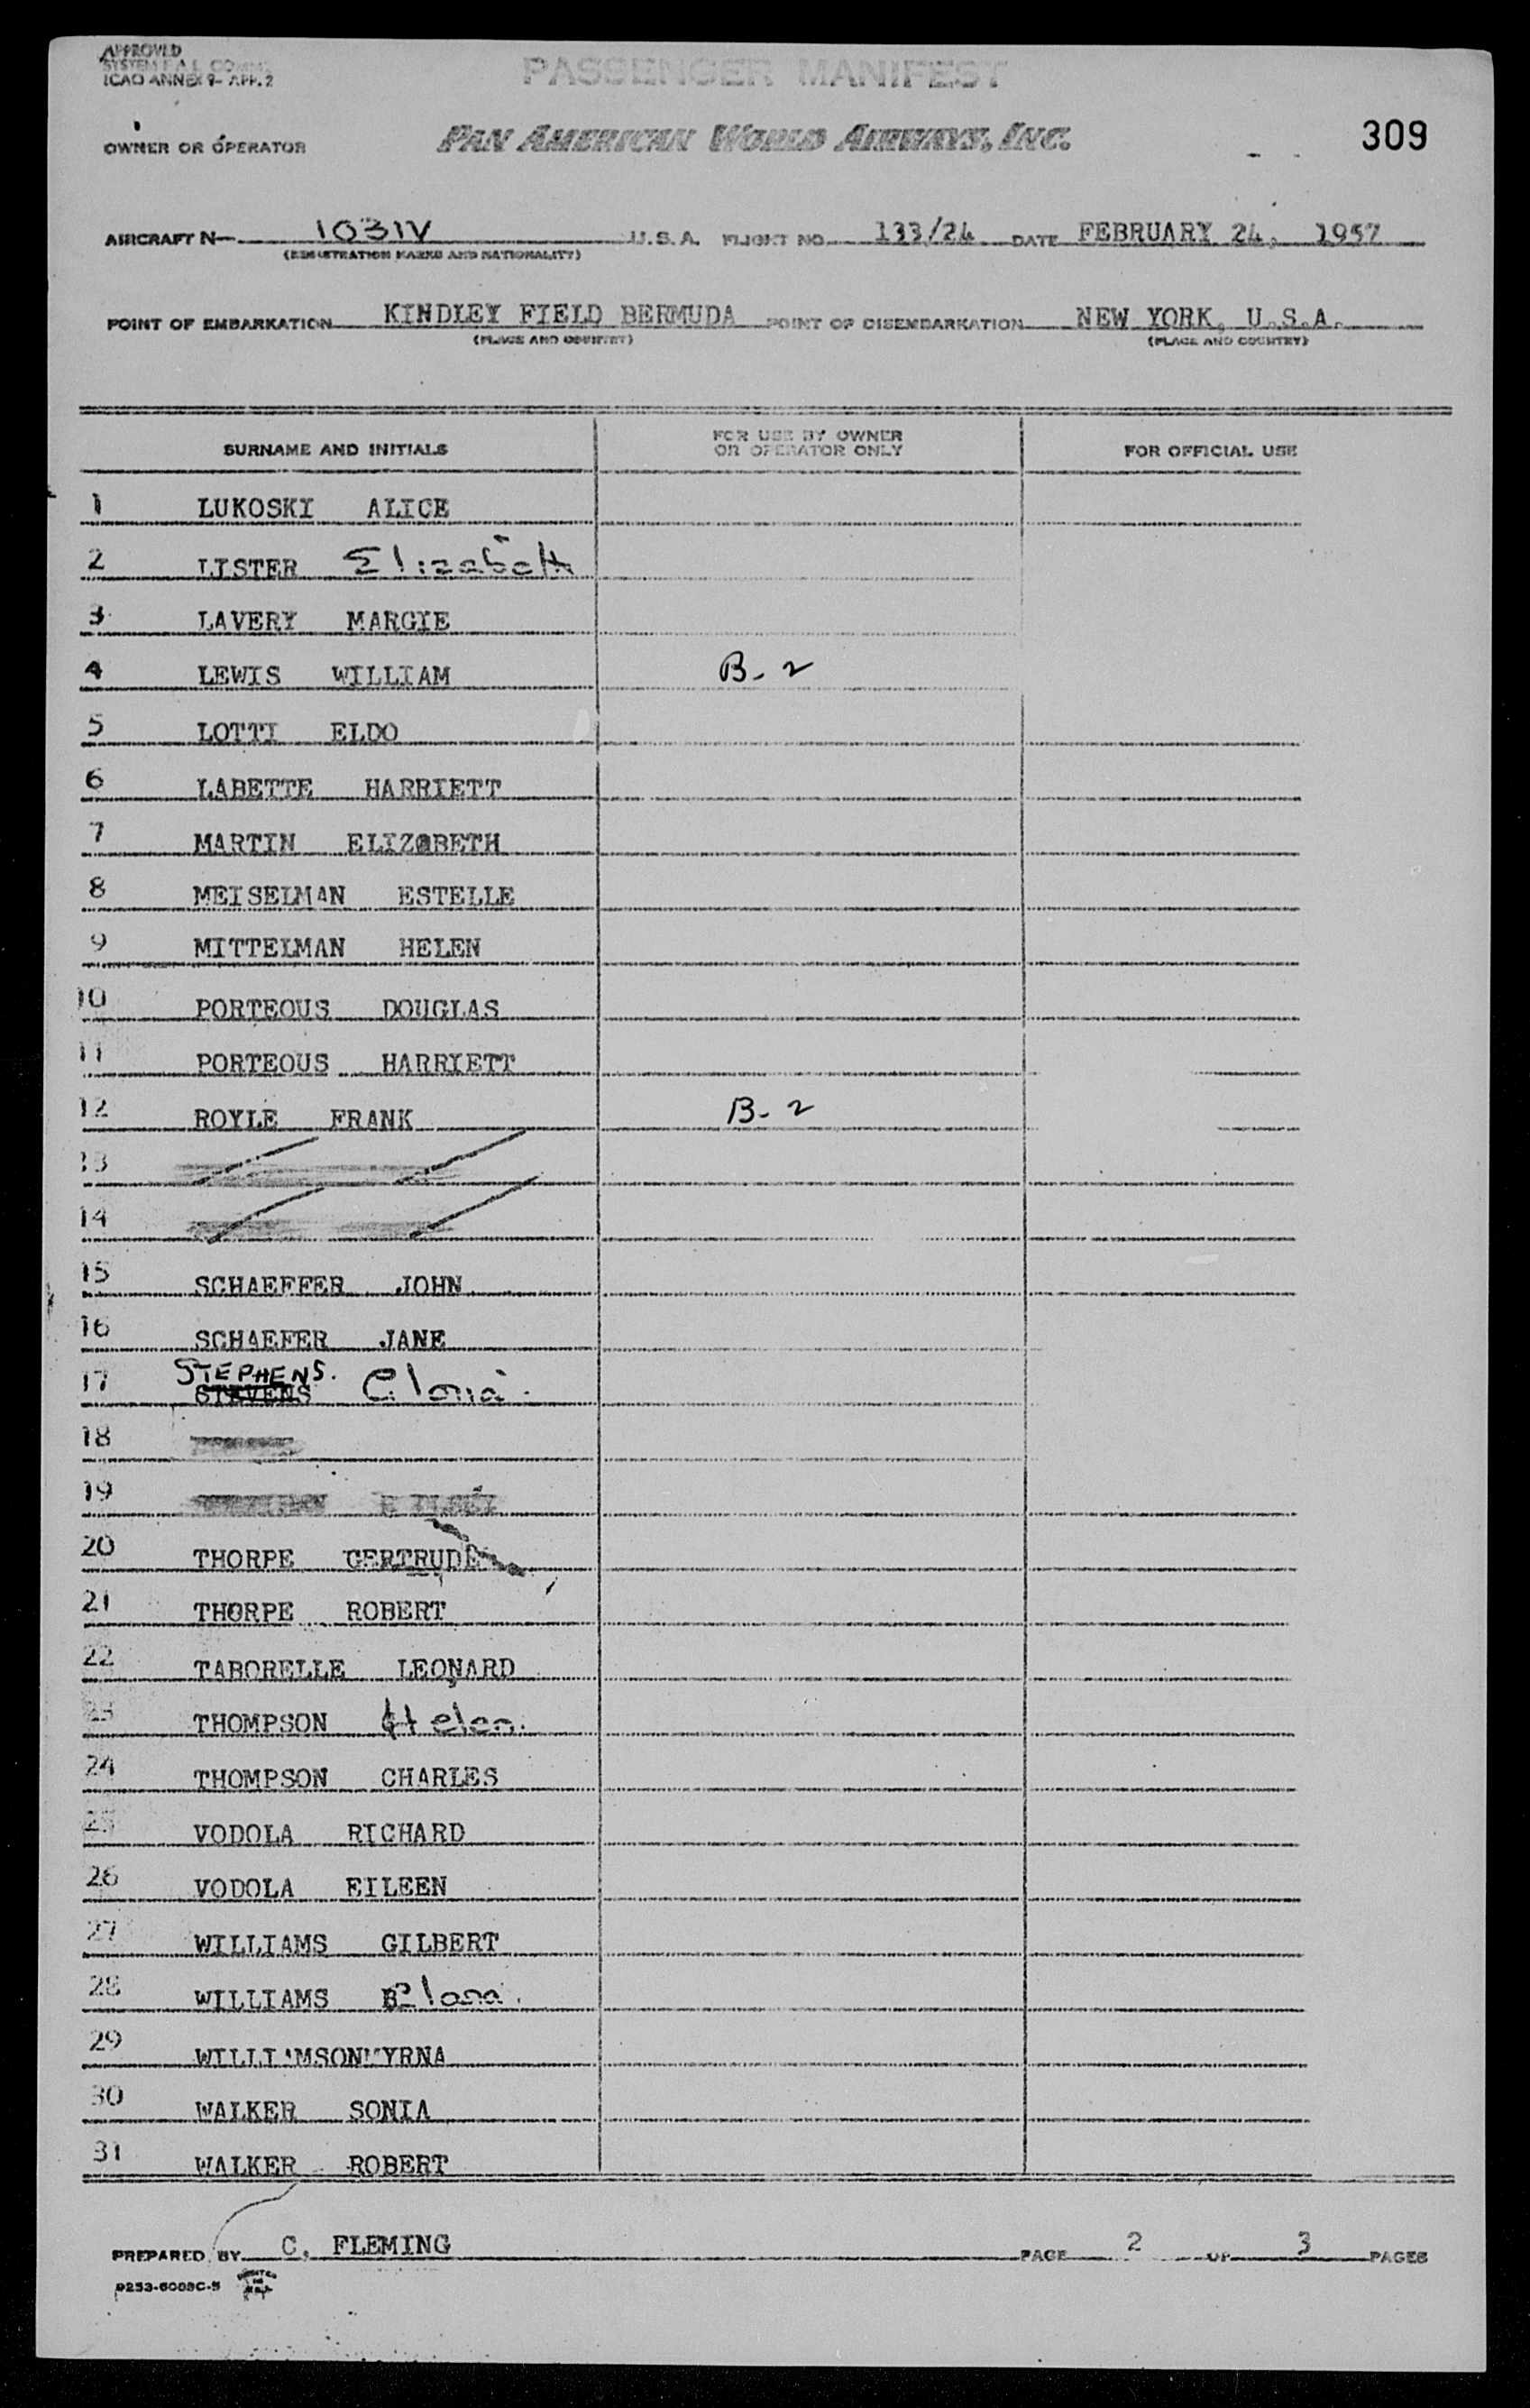 APPROVED
SYSTEM F.A.L. COMM.
ICAO ANNEX 9- APP. 2
PASSENGER MANIFEST
OWNER OR OPERATOR PAN AMERICAN WORLD AIRWAYS, INC. 309
AIRCRAFT N— 1031V U.S.A. FLIGHT NO. 133/24 DATE FEBRUARY 24, 1957
(REGISTRATION MARKS AND NATIONALITY)
POINT OF EMBARKATION KINDLEY FIELD BERMUDA POINT OF DISEMBARKATION NEW YORK, U.S.A.
(PLACE AND COUNTRY) (PLACE AND COUNTRY)
SURNAME AND INITIALS FOR USE BY OWNER OR OPERATOR ONLY FOR OFFICIAL USE
1 LUKOSKI ALICE
2 LISTER Elizabeth
3 LAVERY MARGIE
4 LEWIS WILLIAM B-2
5 LOTTI ELDO
6 LABETTE HARRIETT
7 MARTIN ELIZABETH
8 MEISELMAN ESTELLE
9 MITTELMAN HELEN
10 PORTEOUS DOUGLAS
11 PORTEOUS HARRIETT
12 ROYLE FRANK B-2
13
14
15 SCHAEFFER JOHN
16 SCHAEFER JANE
17 STEPHENS. STEVENS Gloria.
18
19
20 THORPE GERTRUDE
21 THORPE ROBERT
22 TABORELLE LEONARD
23 THOMPSON Helen.
24 THOMPSON CHARLES
25 VODOLA RICHARD
26 VODOLA EILEEN
27 WILLIAMS GILBERT
28 WILLIAMS
29 WILLIAMSON MYRNA
30 WALKER SONIA
31 WALKER ROBERT
PREPARED BY C. FLEMING PAGE 2 OF 3 PAGES
9253-6009C-5